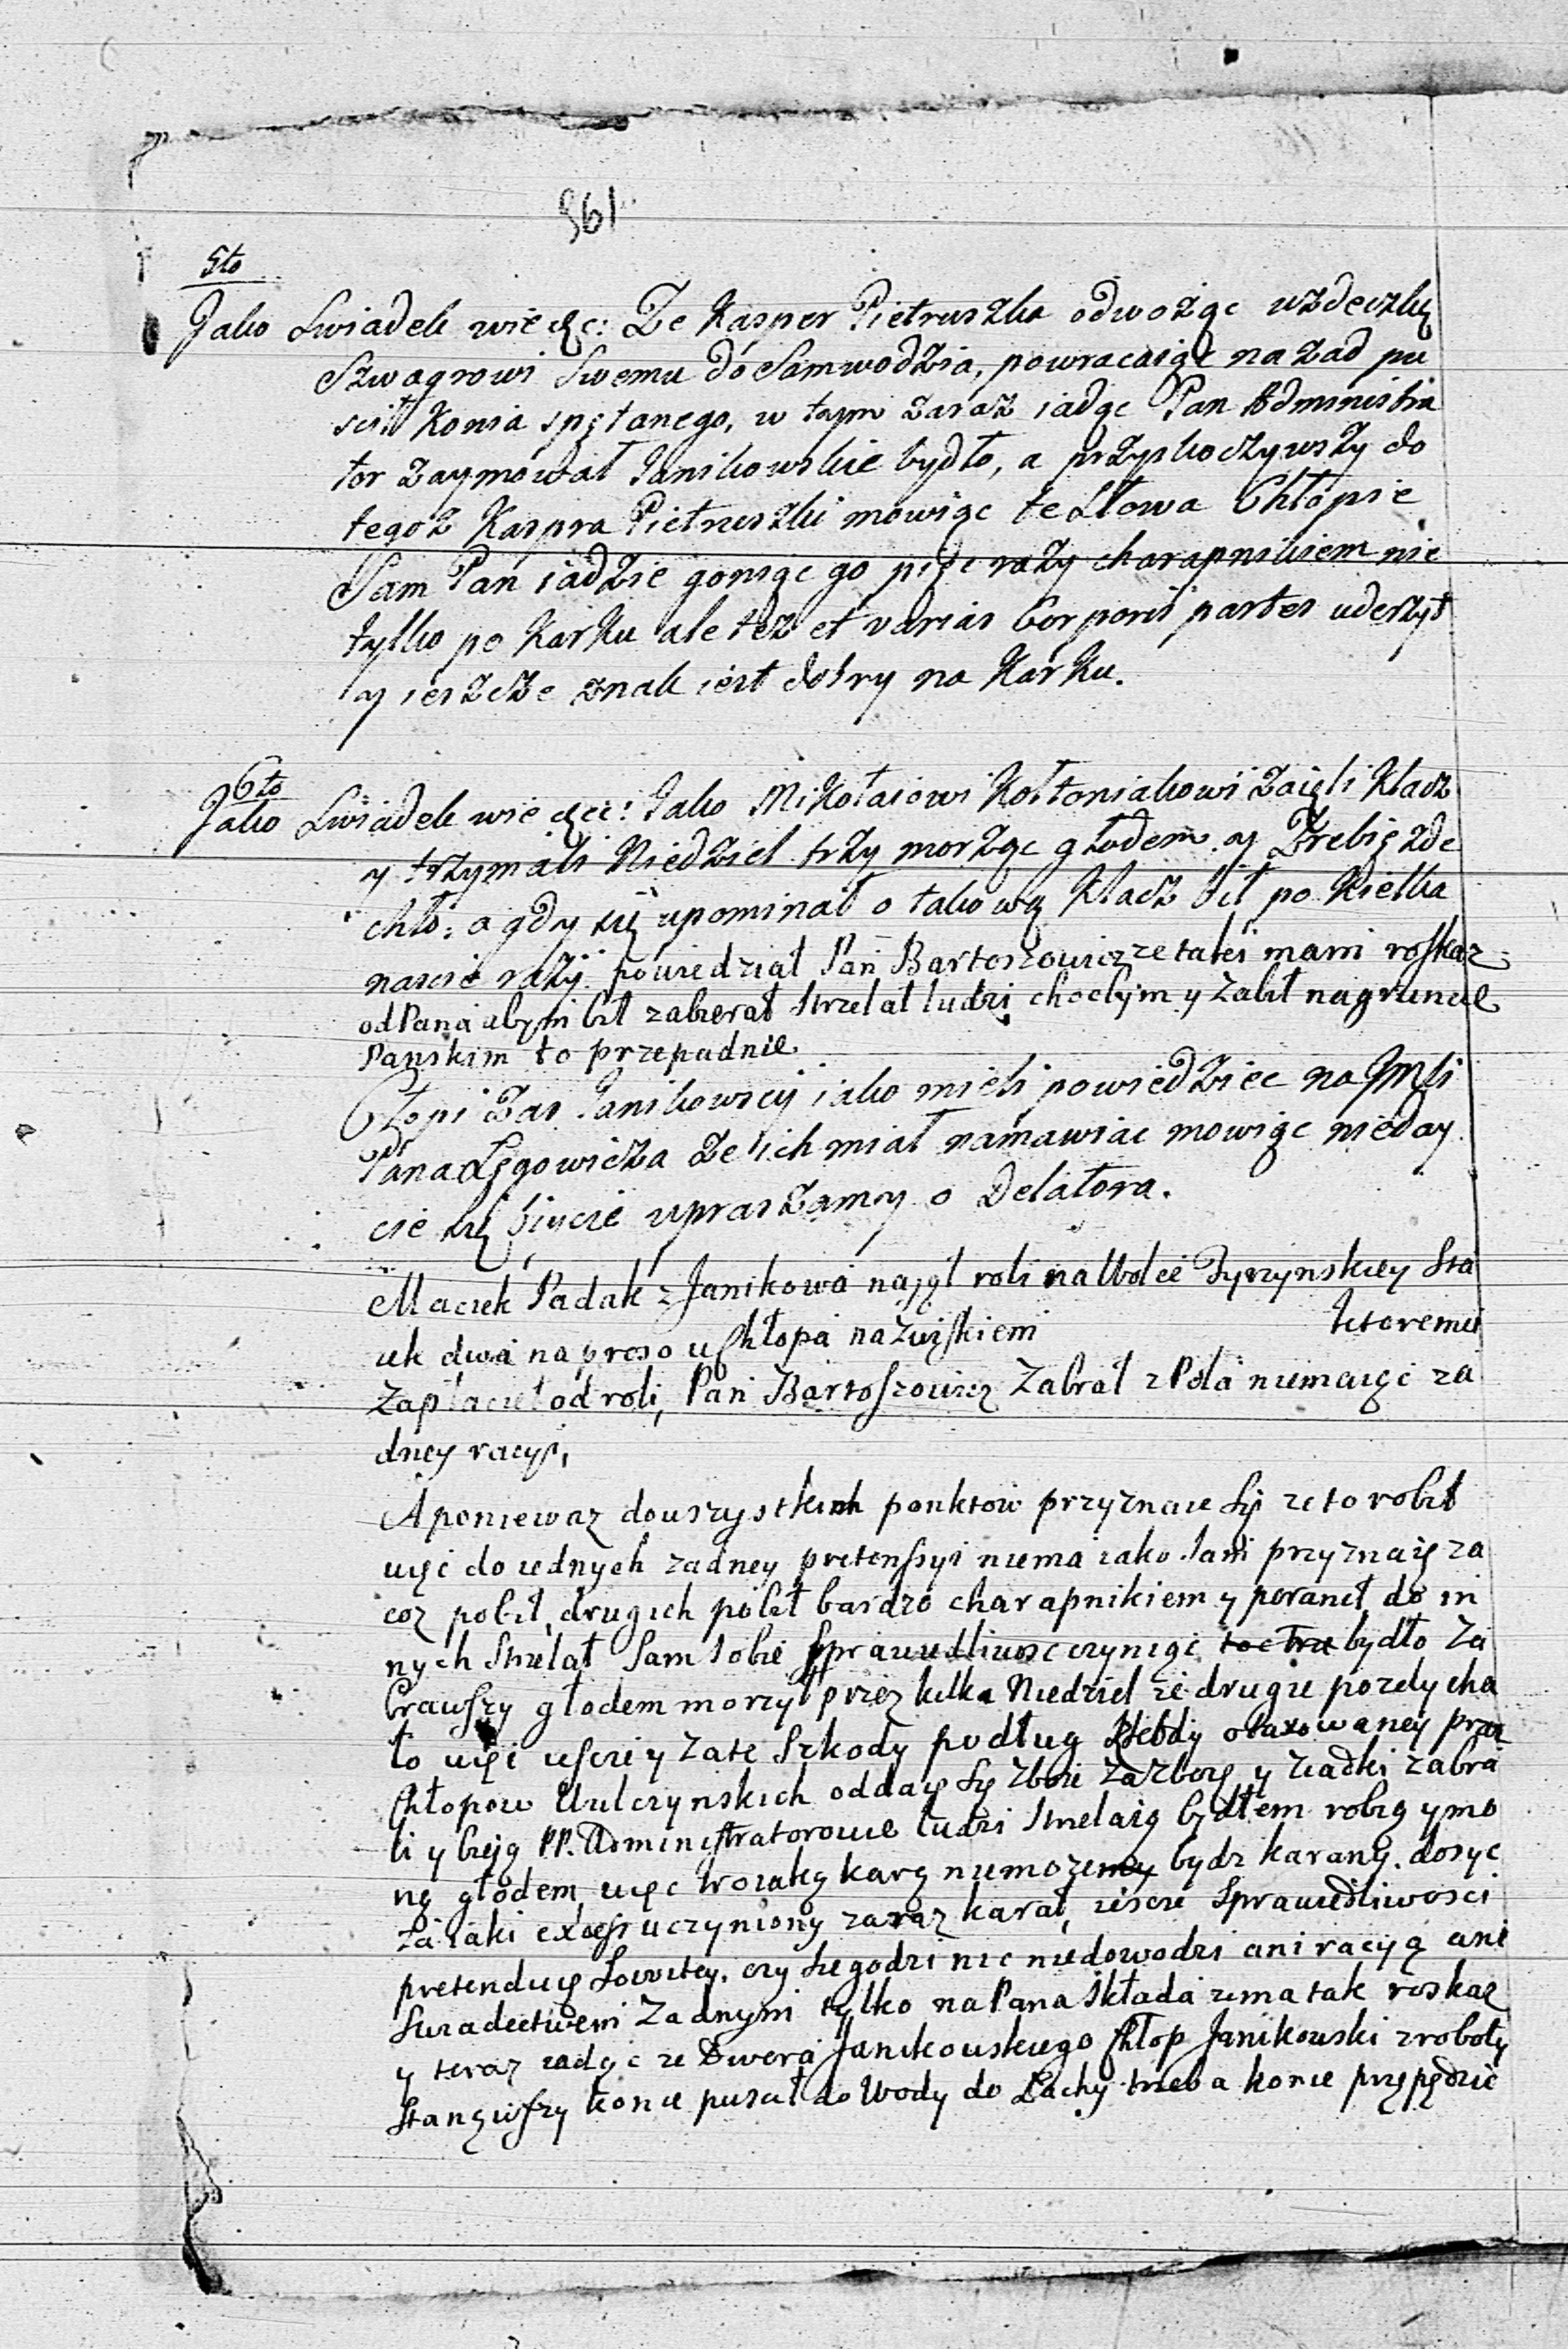 961
5to
Jako Swiadek wie dzę: Ze Kasper Pietruszka odwożąc uzdeczkę
Szwagrowi Swemu do Samwodzia, powracaiąc na zad pu
scił Konia spętanego, w tym zaraz iadąc Pan Administra
tor zaymował Janikowskie bydło, a przyskoczywszy do
tegoż Kaspra Pietruszki mowiąc te Słowa Chłopie
Sam Pan iadzie goniąc go pięc razy charapnikiem nie
tylko po Karku ale też et varias Corporis partes uderzył
y ieszcze znak iest dobry na Karku.
6to
Jako Swiadek wie dzci: Jako Mikołaiowi Kołtoniakowi Zaięli Klacz
y trzymali Niedziel trzy morząc głodem. y Zrebię zde
chło; a gdy się upominał o takową Klacz bił po Kielka
nascie razy. powiedział Pan Bartoszowicz ze takei mam roskaz
od Pana abym bił zabierał Strzelał ludzi chocbym y zabił na gruncie
Panskim to przepadnie.
Chłopi Zas Janikowscy iako mieli powiedziec na JMci
Pana Lęgowicza ze ich miał namawiac mowiąc nieday
cie się biycie upraszamy o Delatora.
Maciek Padak z Janikowa najął roli na Wolce Tyrzynskiey Sta
iek dwa na proso u Chłopa nazwiskiem ktoremu
Zapłacieł od roli, Pan Bartoszowicz Zabrał z Pola niemaiąc za
dney racyi,
A poniewaz do wszystkich ponktow przyznaie Się ze to robił
więc do iednych zadney pretensyi niema iako Sam przyznaię za
coz pobił, drugich pobił bardzo charapnikiem y poranił do in
nych Strzelał Sam Sobie Sprawiedliwosc czyniąc bydło Za
brawszy głodem morzył przez kilka Niedziel ze drugie pozdycha
ło więc ieszcze y Za te Szkody podług otaxowaney przez
Chłopow Wulczynskich oddaię Się Zboze za Zboze y zradki zabra
li y bieją PP. Administratorowie ludzi Strzelaią bydłem robią y mo
rzą głodem więc troiaką karą niemozemy bydz karany. dosyc
Za iaki exces uczyniony zaraz karał, ieszcze Sprawiedliwosci
pretenduię Sowitey. czy Sie godzi nic niedowodzi ani racyą ani
Swiadectwem Zadnym tylko na Pana Składa ze ma tak roskaz
y teraz iadąc ze Dwora Janikowskiego Chłop Janikowski z roboty
Stanąwszy konie puscił do Wody do Lachy trzeba konie przepędzic